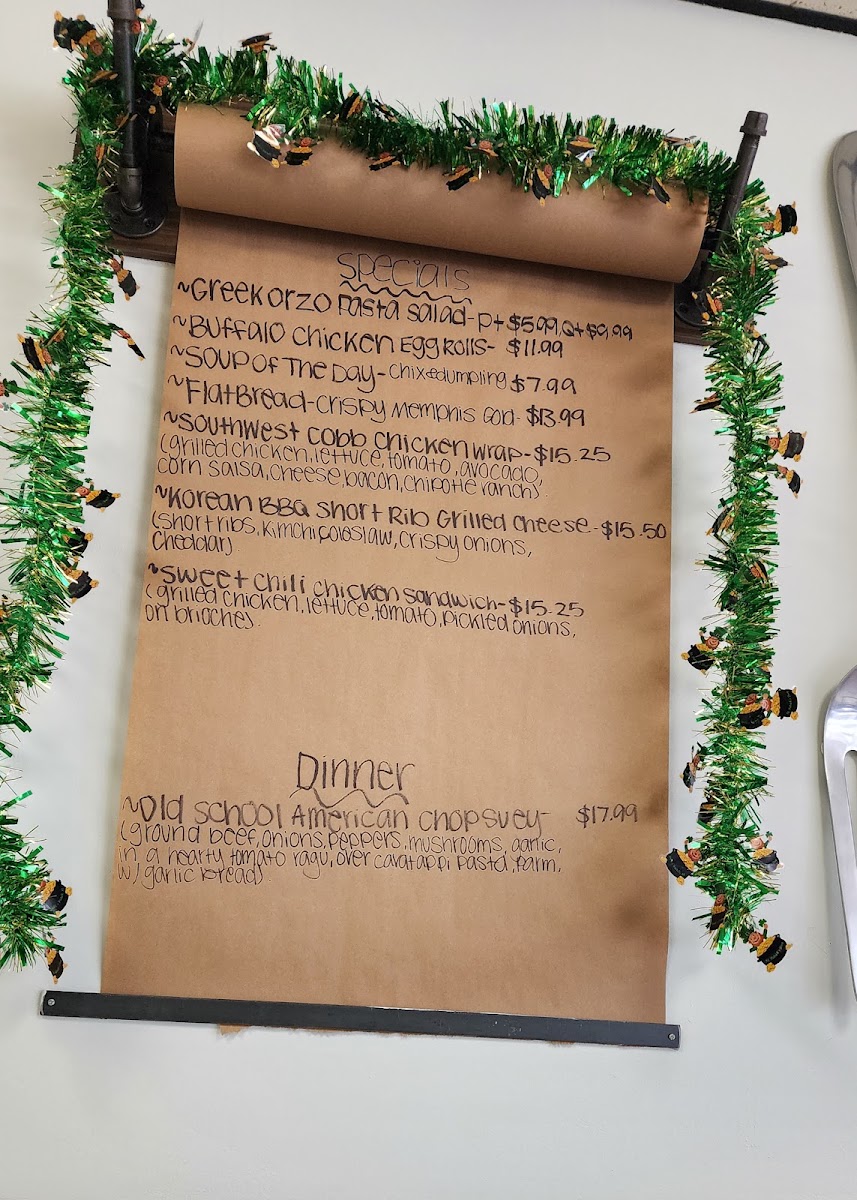 Specials
~Greek orzo Pasta salad-pt $5.99, Qt $9.99
~Buffalo chicken Egg Rolls- $11.99
~Soup Of The Day-chix&dumpling $7.99
~FlatBread-crispy Memphis Gold- $13.99
~Southwest cobb chicken wrap-$15.25
(grilled chicken, lettuce, tomato, avocado,
corn salsa, cheese, bacon, chipotle ranch).
~Korean BBQ Short Rib Grilled cheese-$15.50
(short ribs, kimchi coleslaw, crispy onions,
cheddar)
~Sweet chili chicken sandwich-$15.25
(grilled chicken, lettuce, tomato, pickled onions,
on brioche).
Dinner
~Old school American chop suey- $17.99
(ground beef, onions, peppers, mushrooms, garlic,
in a hearty tomato ragu, over cavatappi pasta, parm,
w/ garlic bread)